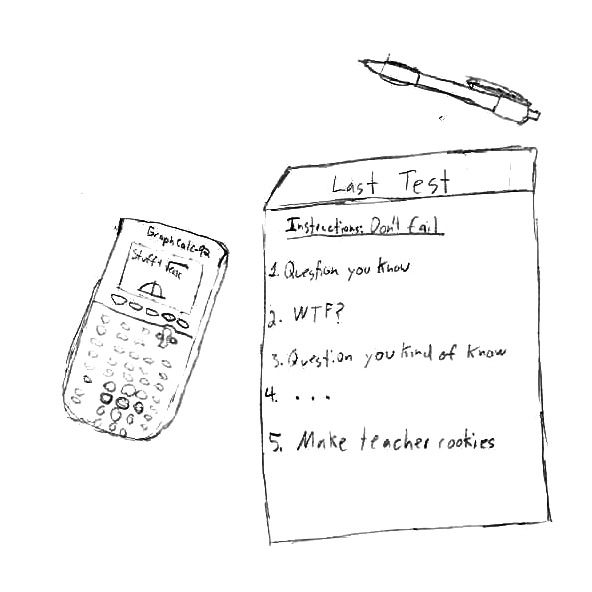 GraphCalc-92
Stuff+
Last Test
Instructions: Don't fail
1. Question you know
2. WTF?
3. Question you kind of know
4. ...
5. Make teacher cookies